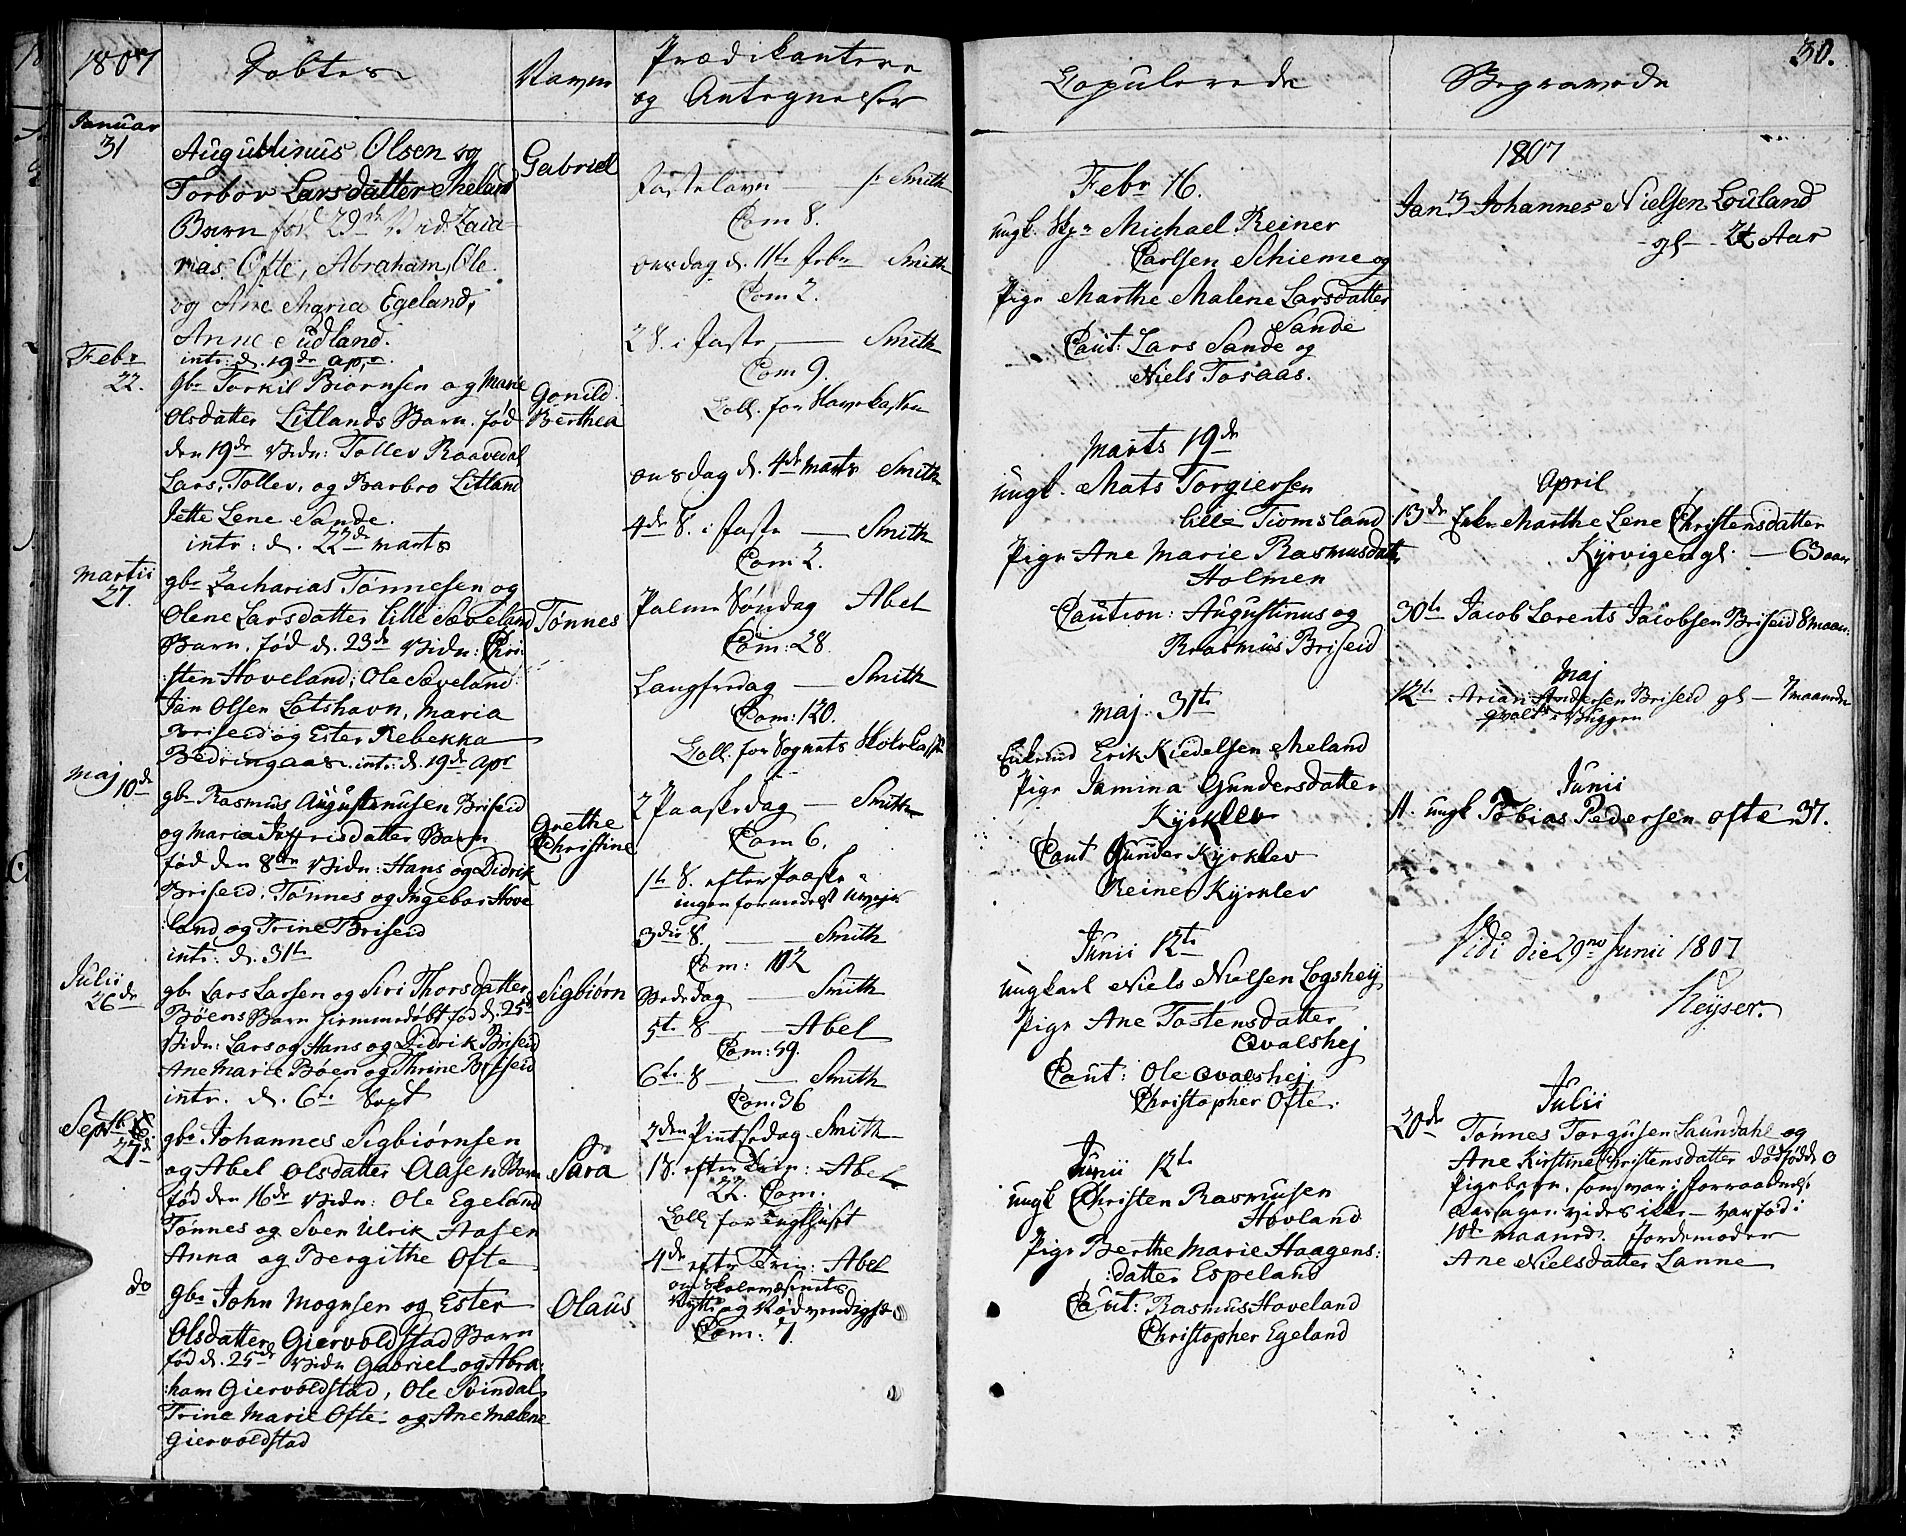 1807
Døbte
Navne
Prædikantere
og Antegnelser
Januar
31
Augustinus Olsen og
Torbor Larsdatter Meland
Barn fød 29de Vid: Zaca-
rias Ofte, Abraham, Ole
og Ane Maria Egeland,
Anne Sudland.
intr: d. 19de Apr.
Gabriel
Febr
22.
gbr Torkil Biørnsen og Marie
Olsdatter Litlands Barn. fød
den 19de Vidn: Tollev Raavedal
Lars, Tollev, og Barbro Litland
Jette Lene Sande.
intr: d. 22de Marts
Gonild
Berthea
Martii
27.
gbr Zacharias Tønnesen og
Olene Larsdatter lille Sæveland
Barn. fød d. 23de Vidn: Chri-
:sten Hoveland; Ole Sæveland
Jan Olsen Lotshavn, Maria
Briseid og Ester Rebekka
Bedringaas. intr: d. 19de Apr
Tønnes
Maj
10de
gbr Rasmus Augustinusen Briseid
og Maria Jeffrisdatter Barn
fød den 8de Vidn: Hans og Didrik
Briseid, Tønnes og Ingebor Hove
:land og Trine Briseid
intr: d. 31te
Grethe
Christine
Julii
26de
gbr Lars Larsen og Siri Thorsdatter
Bøens Barn hiemmedøbt fød d. 25de
Vidn: Lars og Hans og Didrik Briseid
Ane Marie Bøen og Thrine Briseid
intr. d. 6te Sept
Sigbiørn
Septbr
27d
gbr Johannes Sigbiørnsen
og Abel Olsdatter Aasen Barn
fød den 16de Vidn: Ole Egeland
Tønnes og Sven Ulrik Aasen
Anna og Bergithe Ofte
Sara
do
gbr John Mognsen og Ester
Olsdatter Giervoldstad Barn
fød d. 25de Vidn Gabriel og Abra:
:ham Giervoldstad, Ole Svindal
Trine Marie Ofte og Ane Malene
Giervoldstad
Olaus
Fastelavn — Hr Smith
Com 8.
onsdag d. 11te Febr Smith
Com 2.
2 S. i Faste — Smith
Com 9.
Coll. for
onsdag d. 4de Marts Smith
4de S. i Faste — Smith
Com 2.
Palme Søndag Abel
Com: 28.
Langfredag — Smith
Com: 120.
Coll. for Sognets
2 Paaskedag — Smith
Com 6.
1te S. efter Paaske
ingen formedelst
3die S. — Smith
Com: 102
Bededag — Smith
5te S — Abel
Com: 59.
6te S — Smith
Com: 36
2den Pintsedag Smith
1 S. efter Trin: Abel
22. Com:
Coll: for Tugthuset
4de efter Trin: Abel
om Skolevæsenets
Nytte og Nødvendighed
Com: 7.
Copulerede
Begravede
30.
Febr 16.
ungk. Michael Reiner
Carlsen Schieme og
Pige Marthe Malene Larsdatter
Sande
Caut: Lars Sande og
Niels Tosaas.
Marts 19de
ungk. Mats Torgiersen
lille Tiomsland
Pige Ane Marie Rasmusdatter
Holmen
Caution: Augustinus og
Rrasmus Briseid
Maj. 31te
Enkemd Erik Kiedelsen Meland
Pige Jamina Gundersdatter
Kyrklev
Caut Gunder Kyrklev
Reiner Kyrklev
Junii 12te
ungkarl Niels Nielsen Logshej
Pige Ane Tostensdatter
Qvalshej
Caut: Ole Qvalshej
Christopher Ofte.
Junii 12te
ungk Christen Rasmusen
Hovland
Pige Berthe Marie Haagens:
:datter Espeland
Caut: Rasmus Hoveland
Christopher Egeland
1807
Jan 13 Johannes Nielsen Louland
gl Aar
April
13de Enke Marthe Lene Christensdatter
Kyrvigen gl. — 63 aar
30te Jacob Lorents Jacobsen Briseid 8 maan:
Maj
12te Arian Andersen Briseid gl — 7 maaneder
qvalt i Vuggen
Junii
11. ungk Tobias Pedersen Ofte 37.
Vidi die 29no Junii 1807
Keyser.
Julii
20de Tønnes Torgusen Laundahl og
Ane Kirstine Christensdatter dødfødde
Pigebarn, som var i forraadnelse
aarsagen vides ikke — var fød i
10de maaned. Jordemoder
Ane Nielsdatter Lanne